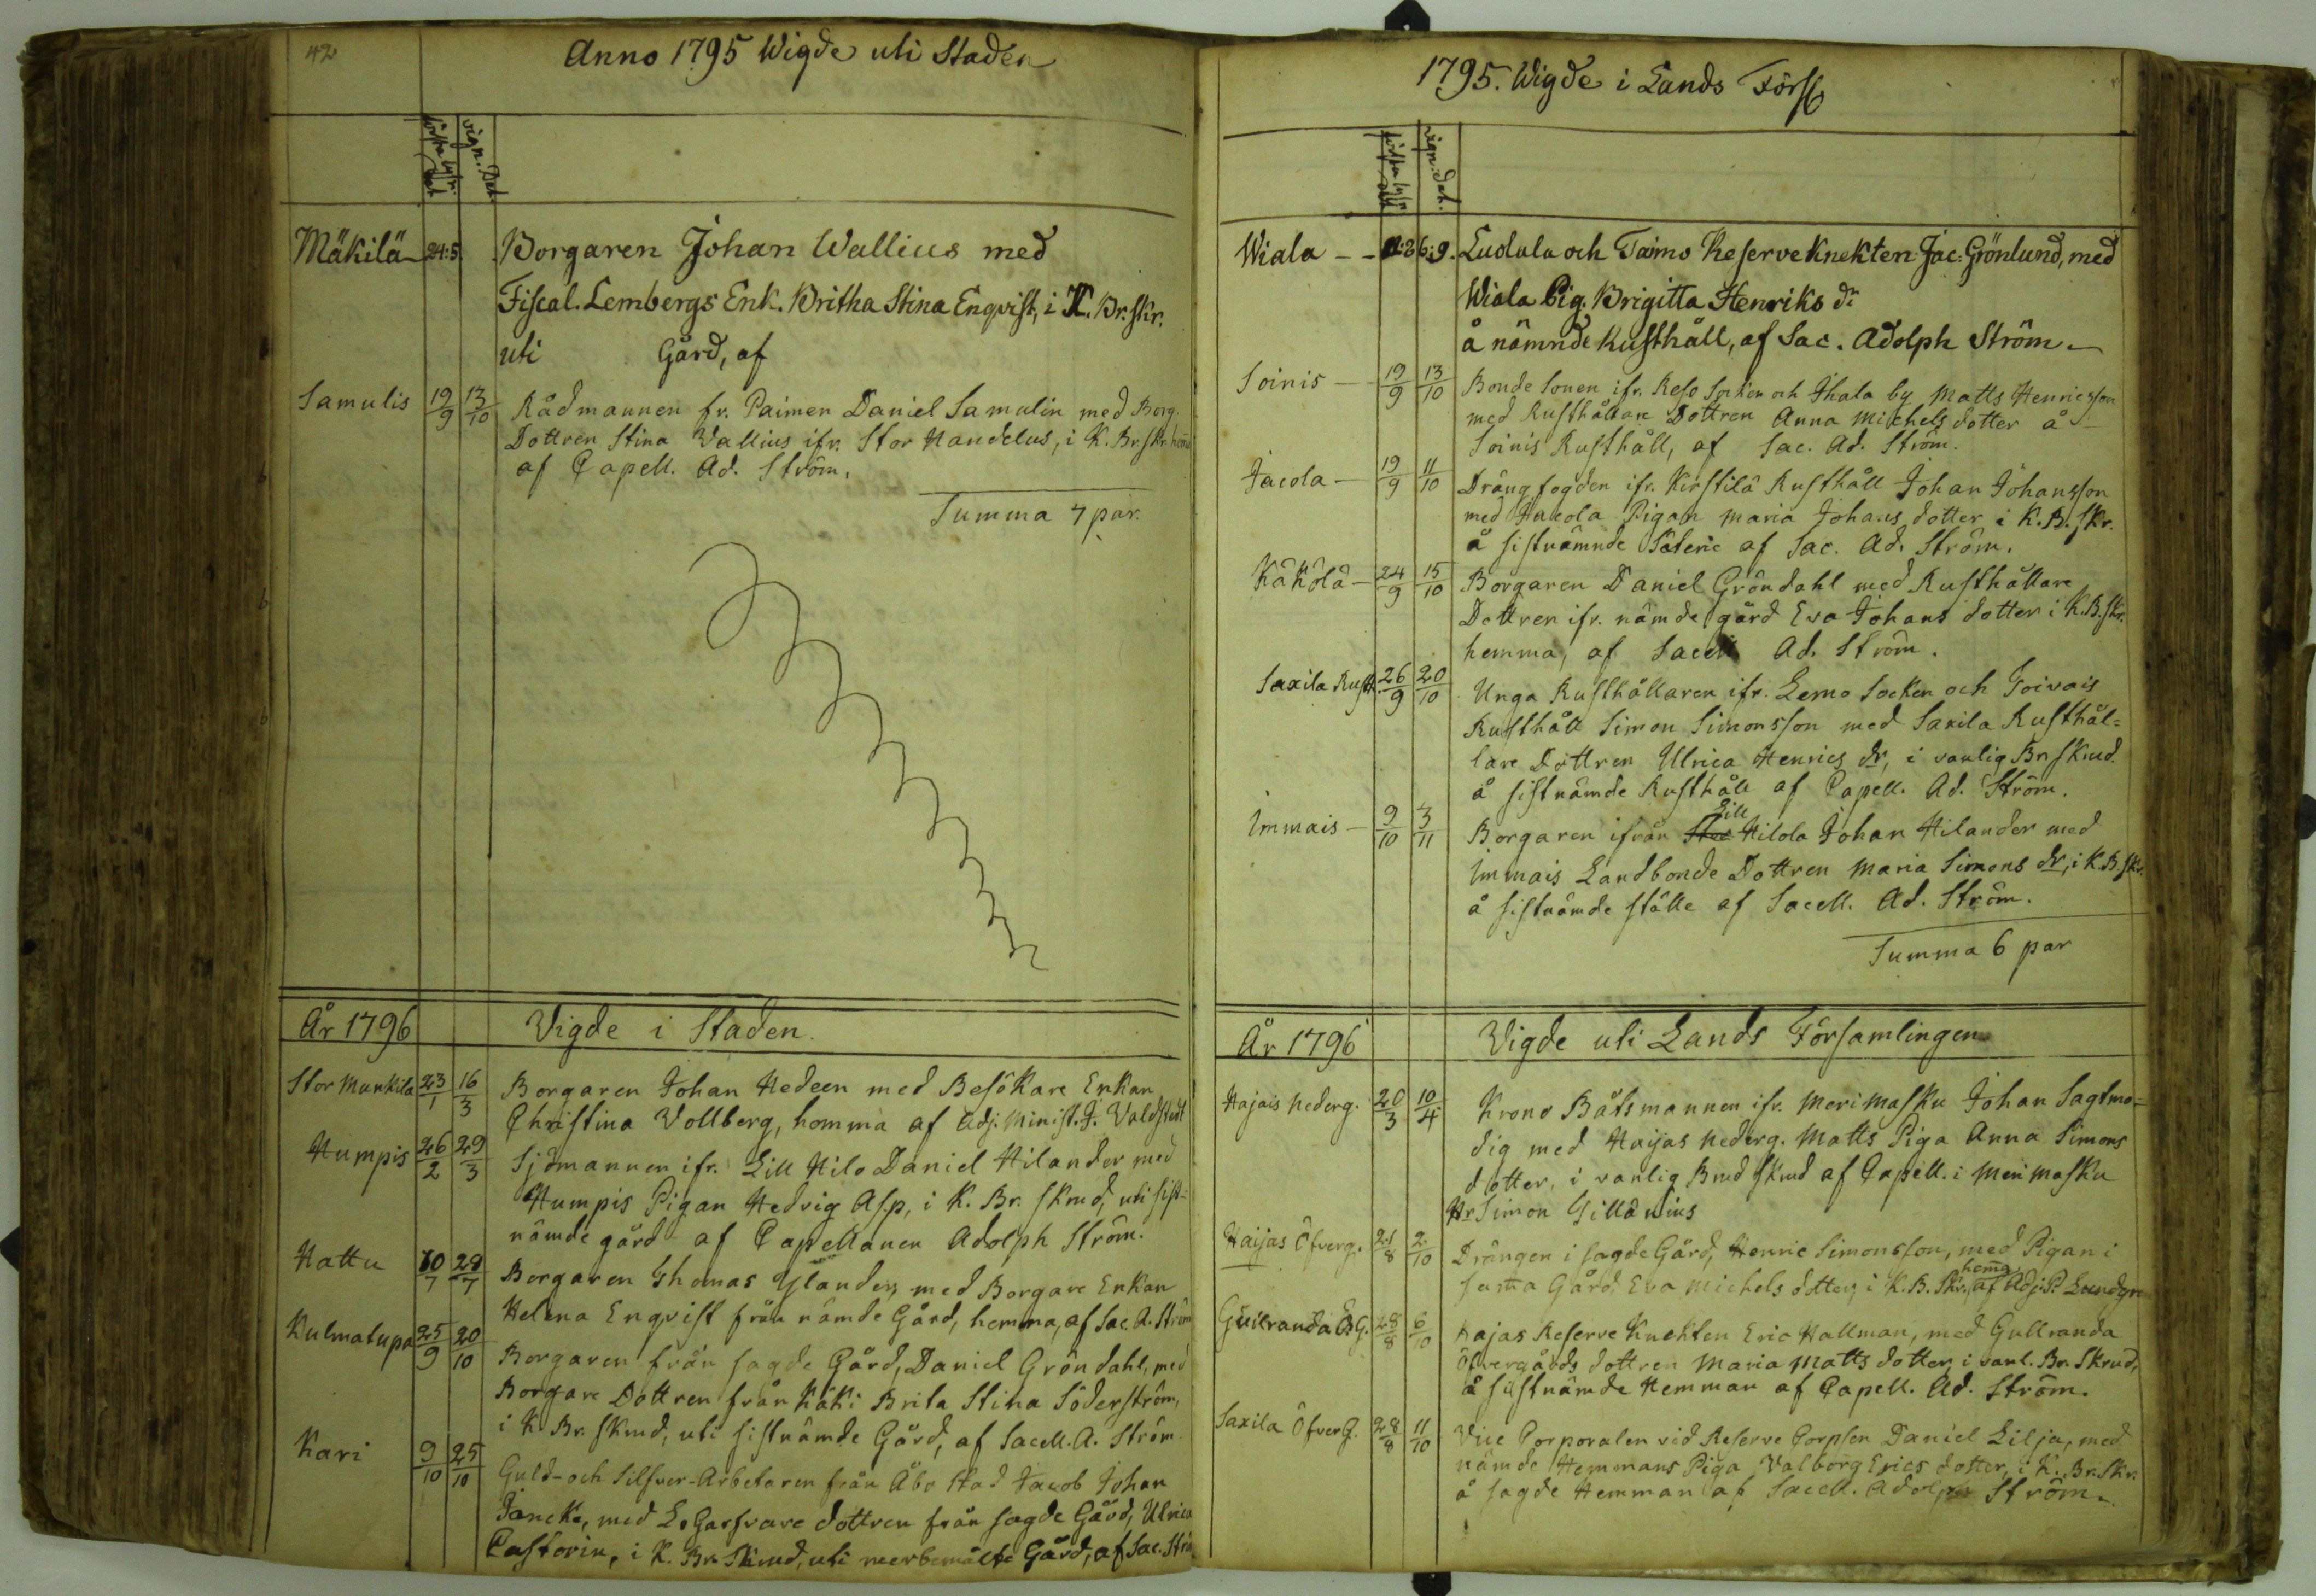 42
Anno 1795 Wigde uti Staden
första lysn. Dat
vign. Dat.
Mäkilä 24:5. Borgaren Johan Wallius med
Fiscal. Lembergs Enk. Britha Stina Enqvist, i K. Br. skr.
uti Gård, af
Samulis 19/9 13/10 Rådmannen fr. Paimen Daniel Samulin med Borg.
Dottren Stina Vallius ifr. Stor Handelus, i K. Br. skr. hema
af Capell. Ad. Ström.
Summa 7 par.
År 1796 Vigde i Staden.
Stor Munkila 23/1 16/3 Borgaren Johan Hedeen med Besökare Enkan
Christina Vollberg, hemma af Adj. Minist. J. Valdstedt
Humpis 26/2 29/3 Sjömannen ifr. Lill Hilo Daniel Hilander med
Humpis Pigan Hedvig Asp, i K. Br. skrud, uti sist-
nämde gård af Capellanen Adolph Ström.
Hattu 10/7 29/7 Borgaren Thomas Ylander, med Borgare Enkan
Helena Enqvist från nämde Gård, hemma, af Sac. A. Ström
Kulmatupa 25/9 20/10 Borgaren från sagde Gård, Daniel Gröndahl, med
Borgare Dottren från Käki Brita Stina Söderström,
i K Br. skrud, uti sistnämde Gård, af Sacell. A. Ström.
Kari 9/10 25/10 Guld- och Silfver-Arbetaren från Åbo stad Jacob Johan
Janck, med L. Garfvare dottren från sagde Gård, Ulrica
Castorin, i K. Br. Skrud, uti merbemälte Gård, af Sac. Ström
1795. Wigde i Lands Förs.
första lysn. dat
vign. dat.
Wiala 6:9. Ludula och Taimo Reserve Knekten Jac: Grönlund, med
Wiala Pig. Brigitta Henriks dr
å nämnde Rusthåll, af Sac. Adolph Ström.
Soinis 19/9 13/10 Bonde Sonen ifr. Reso Socken och Ihala by Matts Henricsson
med Rusthållare Dottren Anna Michels dotter å
Soinis Rusthåll, af Sac. Ad. Ström.
Jacola 19/9 11/10 Drängfogden ifr. Kirstilä Rusthåll Johan Johansson
med Jacola Pigan Maria Johans dotter i K. B. skr.
å sistnämnde Säterie af Sac. Ad. Ström.
Käkölä 24/9 15/10 Borgaren Daniel Gröndahl med Rusthållare
Dottren ifr. nämde gård Eva Johans dotter i K. B. skr.
hemma, af Sacell Ad. Ström.
Saxila Rusth. 26/9 20/10 Unga Rusthållaren ifr. Lemo Socken och Toivais
Rusthåll Simon Simonsson med Saxila Rusthål=
lare Dottren Ulrica Henrics dr, i vanlig Br. skrud
å sistnämde Rusthåll af Capell. Ad. Ström.
Immais 9/10 3/11 Borgaren ifrån Lill Hilola Johan Hilander med
Immais Landbonde Dottren Maria Simons dr, i K. B. skr.
å sistnämde ställe af Sacell. Ad. Ström.
Summa 6 par
År 1796 Vigde uti Lands Församlingen
Hajais nederg. 20/3 10/4 Krono Båtsmannen ifr. Merimasku Johan Sagtmo-
dig med Haijas nederg. Matts Piga Anna Simons
dotter, i vanlig Brud skrud af Capell. i Merimasku
Hr Simon Gillænius
Haijas Öfverg. 21/8 2/10 Drängen i sagde Gård, Henric Simonsson, med Pigan i
sama Gård, Eva Michels dotter, i K. B. Skr., hema, af Adj. P. Lundgren
Gullranda Ö.G. 28/8 6/10 Hajas Reserve Knekten Eric Hallman, med Gullranda
Öfvergårds dottren Maria Matts dotter, i vanl. Br. Skrud,
å sistnämde Hemman af Capell. Ad. Ström.
Saxila Öfver G. 28/8 11/10 Vice Corporalen vid Reserve Corpsen Daniel Lilja, med
nämde Hemmans Piga Valborg Erics dotter, i K. Br. Skr.
å sagde Hemman af Sacell. Adolph Ström.